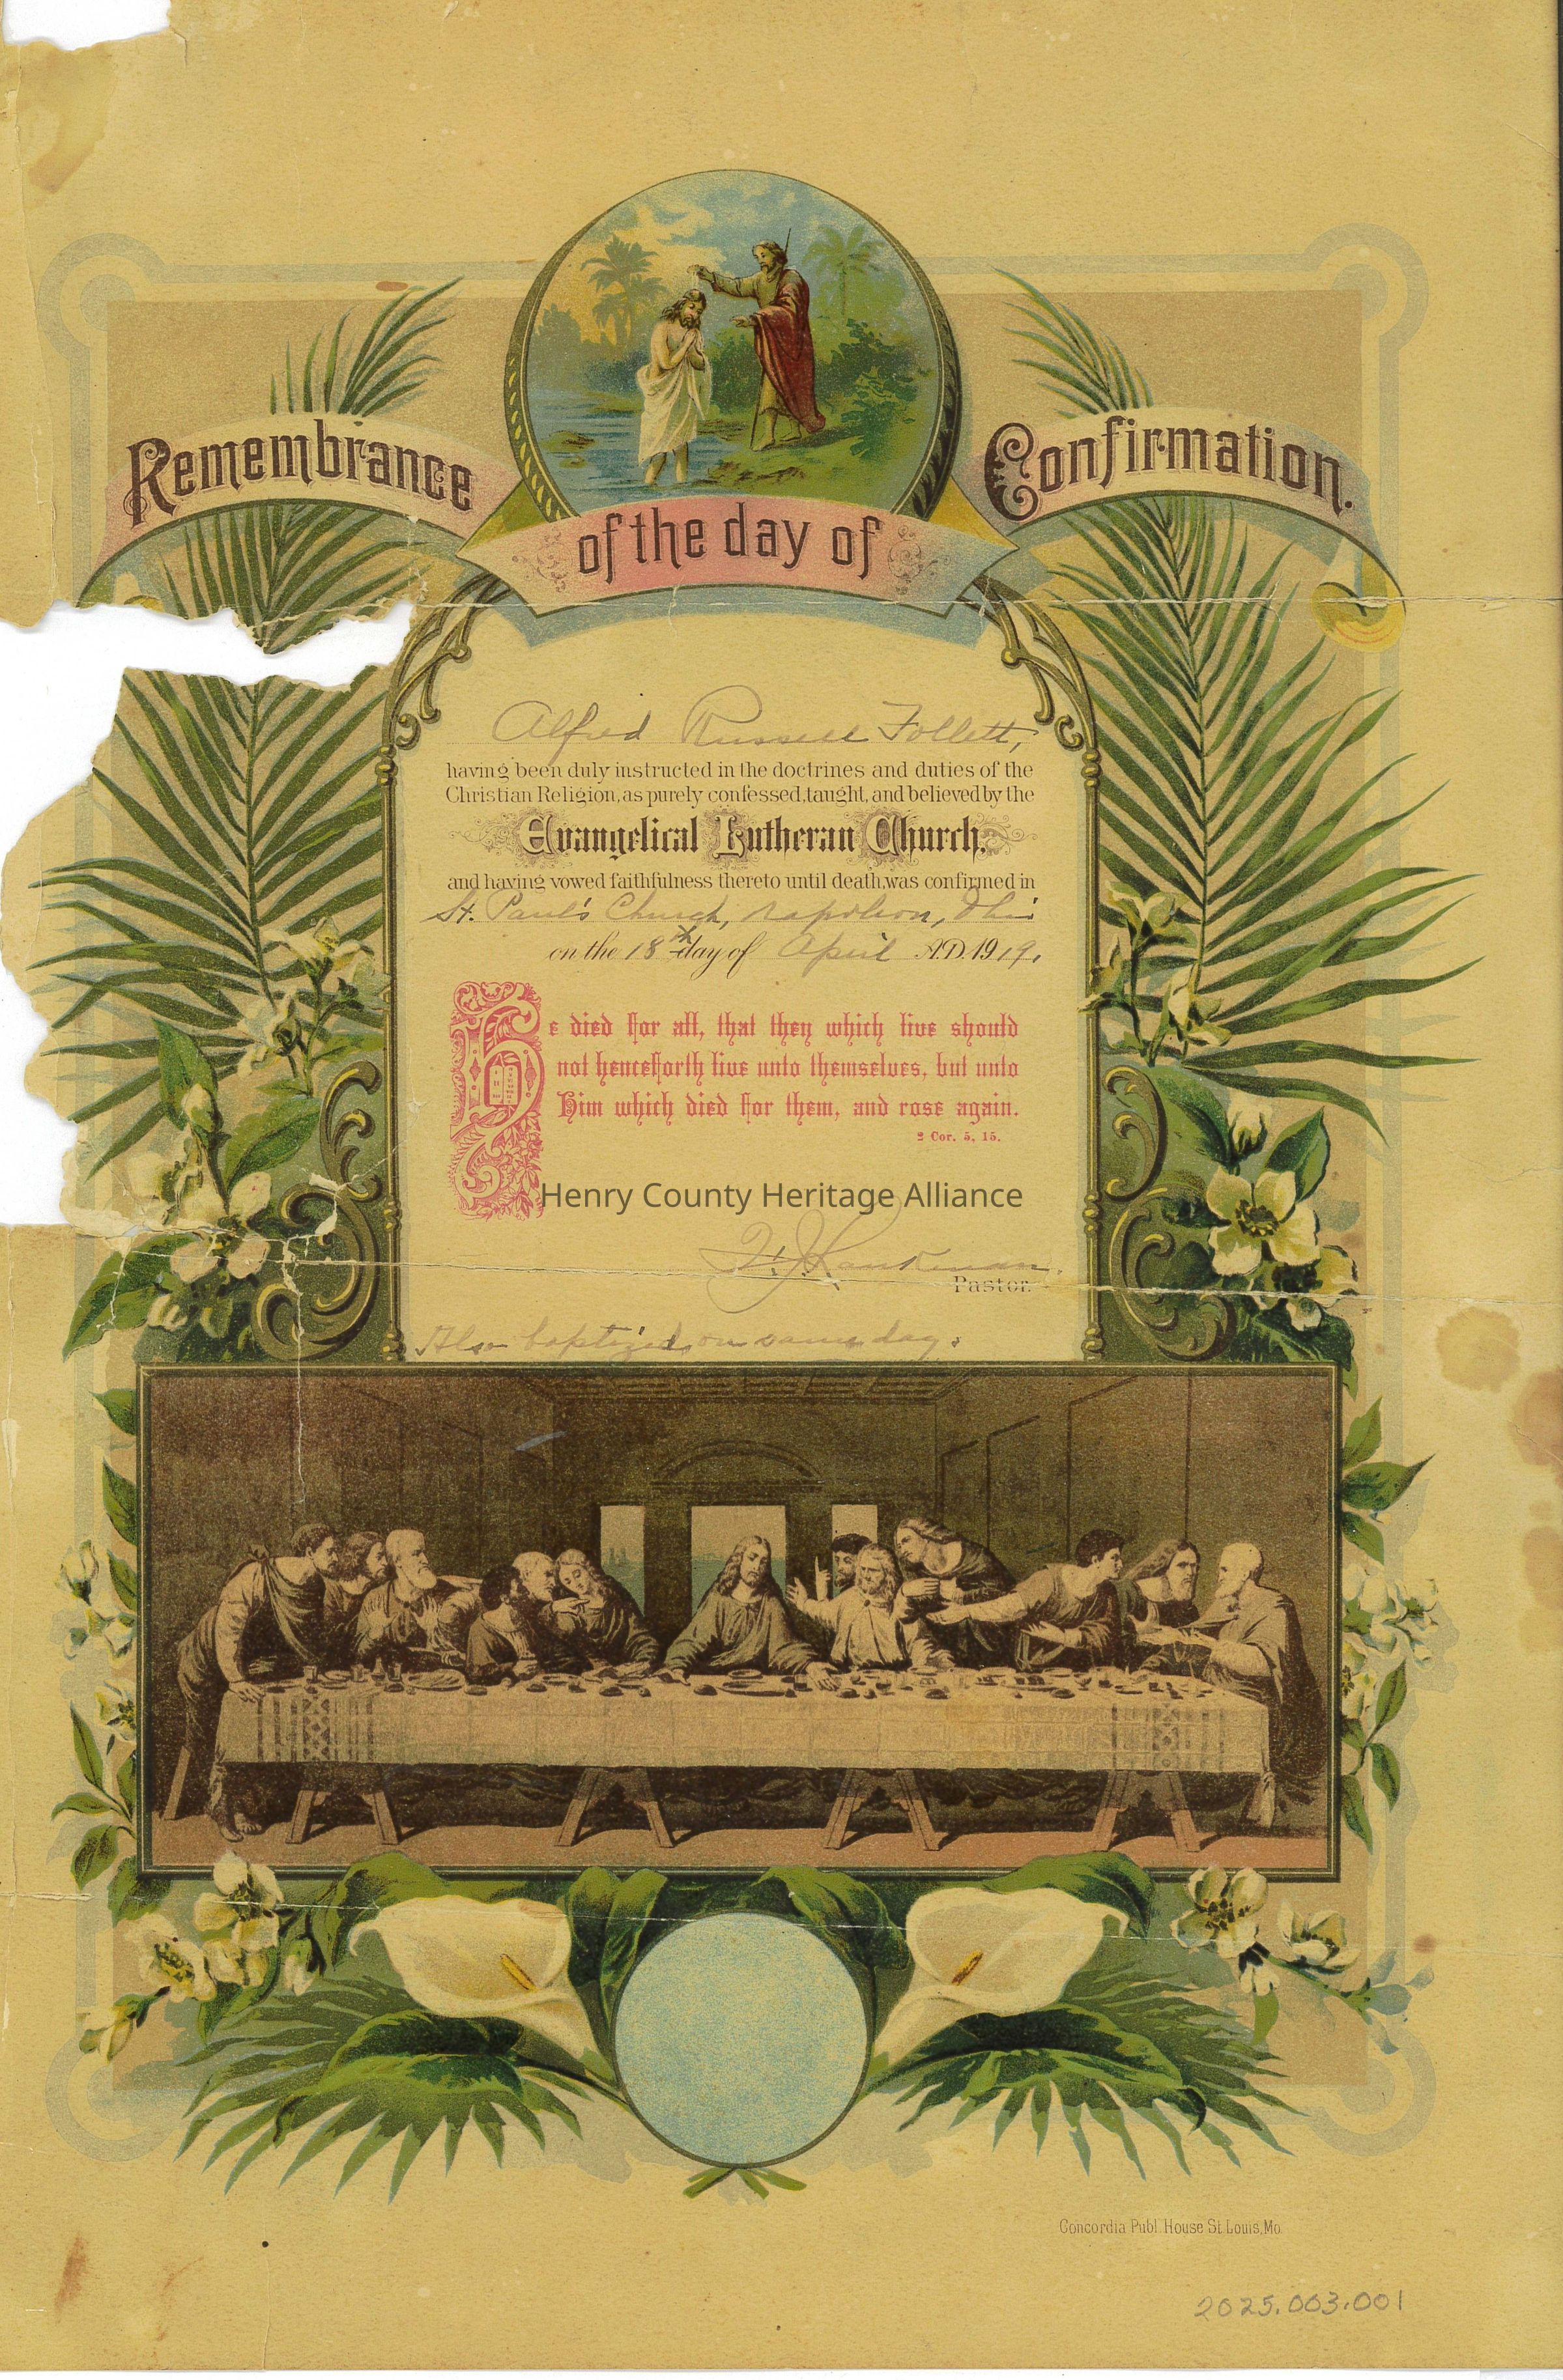 Remembrance
of the day of
Confirmation.
Alfred Russell Follett,
having been duly instructed in the doctrines and duties of the
Christian Religion, as purely confessed, taught, and believed by the
Evangelical Lutheran Church,
and having vowed faithfulness thereto until death, was confirmed in
St. Paul's Church, Napoleon, Ohio
on the 18th day of April A.D. 1919.
He died for all, that they which live should
not henceforth live unto themselves, but unto
Him which died for them, and rose again.
2 Cor. 5, 15.
Henry County Heritage Alliance
Pastor.
Also baptized on same day.
Concordia Publ. House St. Louis, Mo.
2025.003.001